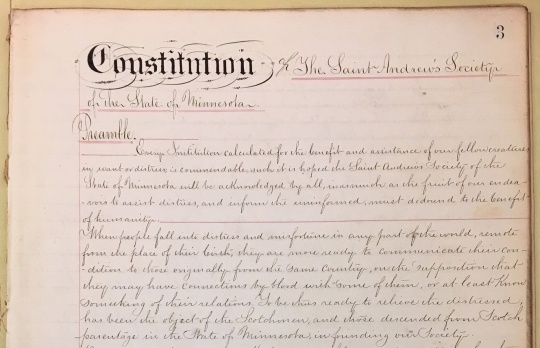 3
Constitution of The Saint Andrew's Society
of the State of Minnesota.
Preamble.
Every Institution calculated for the benefit and assistance of our fellow creatures
in want or distress is commendable, such it is hoped the Saint Andrew's Society of the
State of Minnesota will be acknowledged by all, inasmuch as the fruit of our endea-
vors to assist distress, and inform the uninformed, must redound to the benefit
of humanity.
When people fall into distress and misfortune in any part of the world, remote
from the place of their birth, they are more ready to communicate their con-
dition to those originally from the same Country, on the supposition that
they may have connections by blood with some of them, or at least know
something of their relations. To be thus ready to relieve the distressed,
has been the object of the Scotchmen, and those descended from Scotch
parentage in the State of Minnesota, in founding our Society.